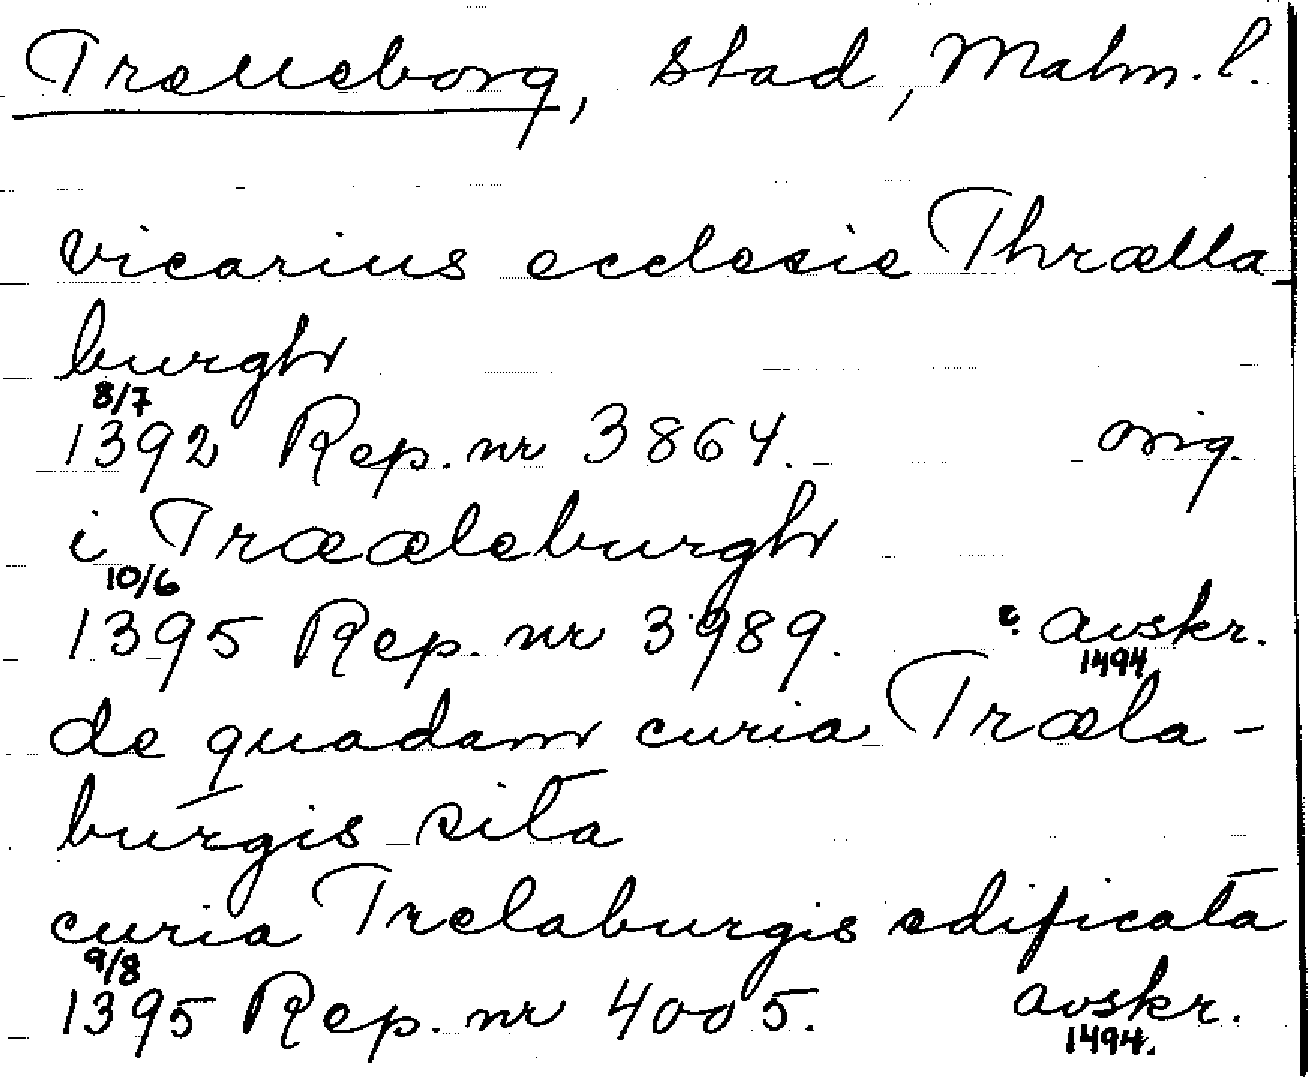 Trelleborg, stad, Malm. l.
vicarius ecclesie Thrælla
burgh
8/7
1392 Rep. nr 3864. orig.
i Trææleburgh
10/6
1395 Rep. nr 3989. avskr.
1494
de quadam curia Træla-
burgis sita
curia Trelaburgis edificata
9/8
1395 Rep. nr 4005. avskr.
1494.